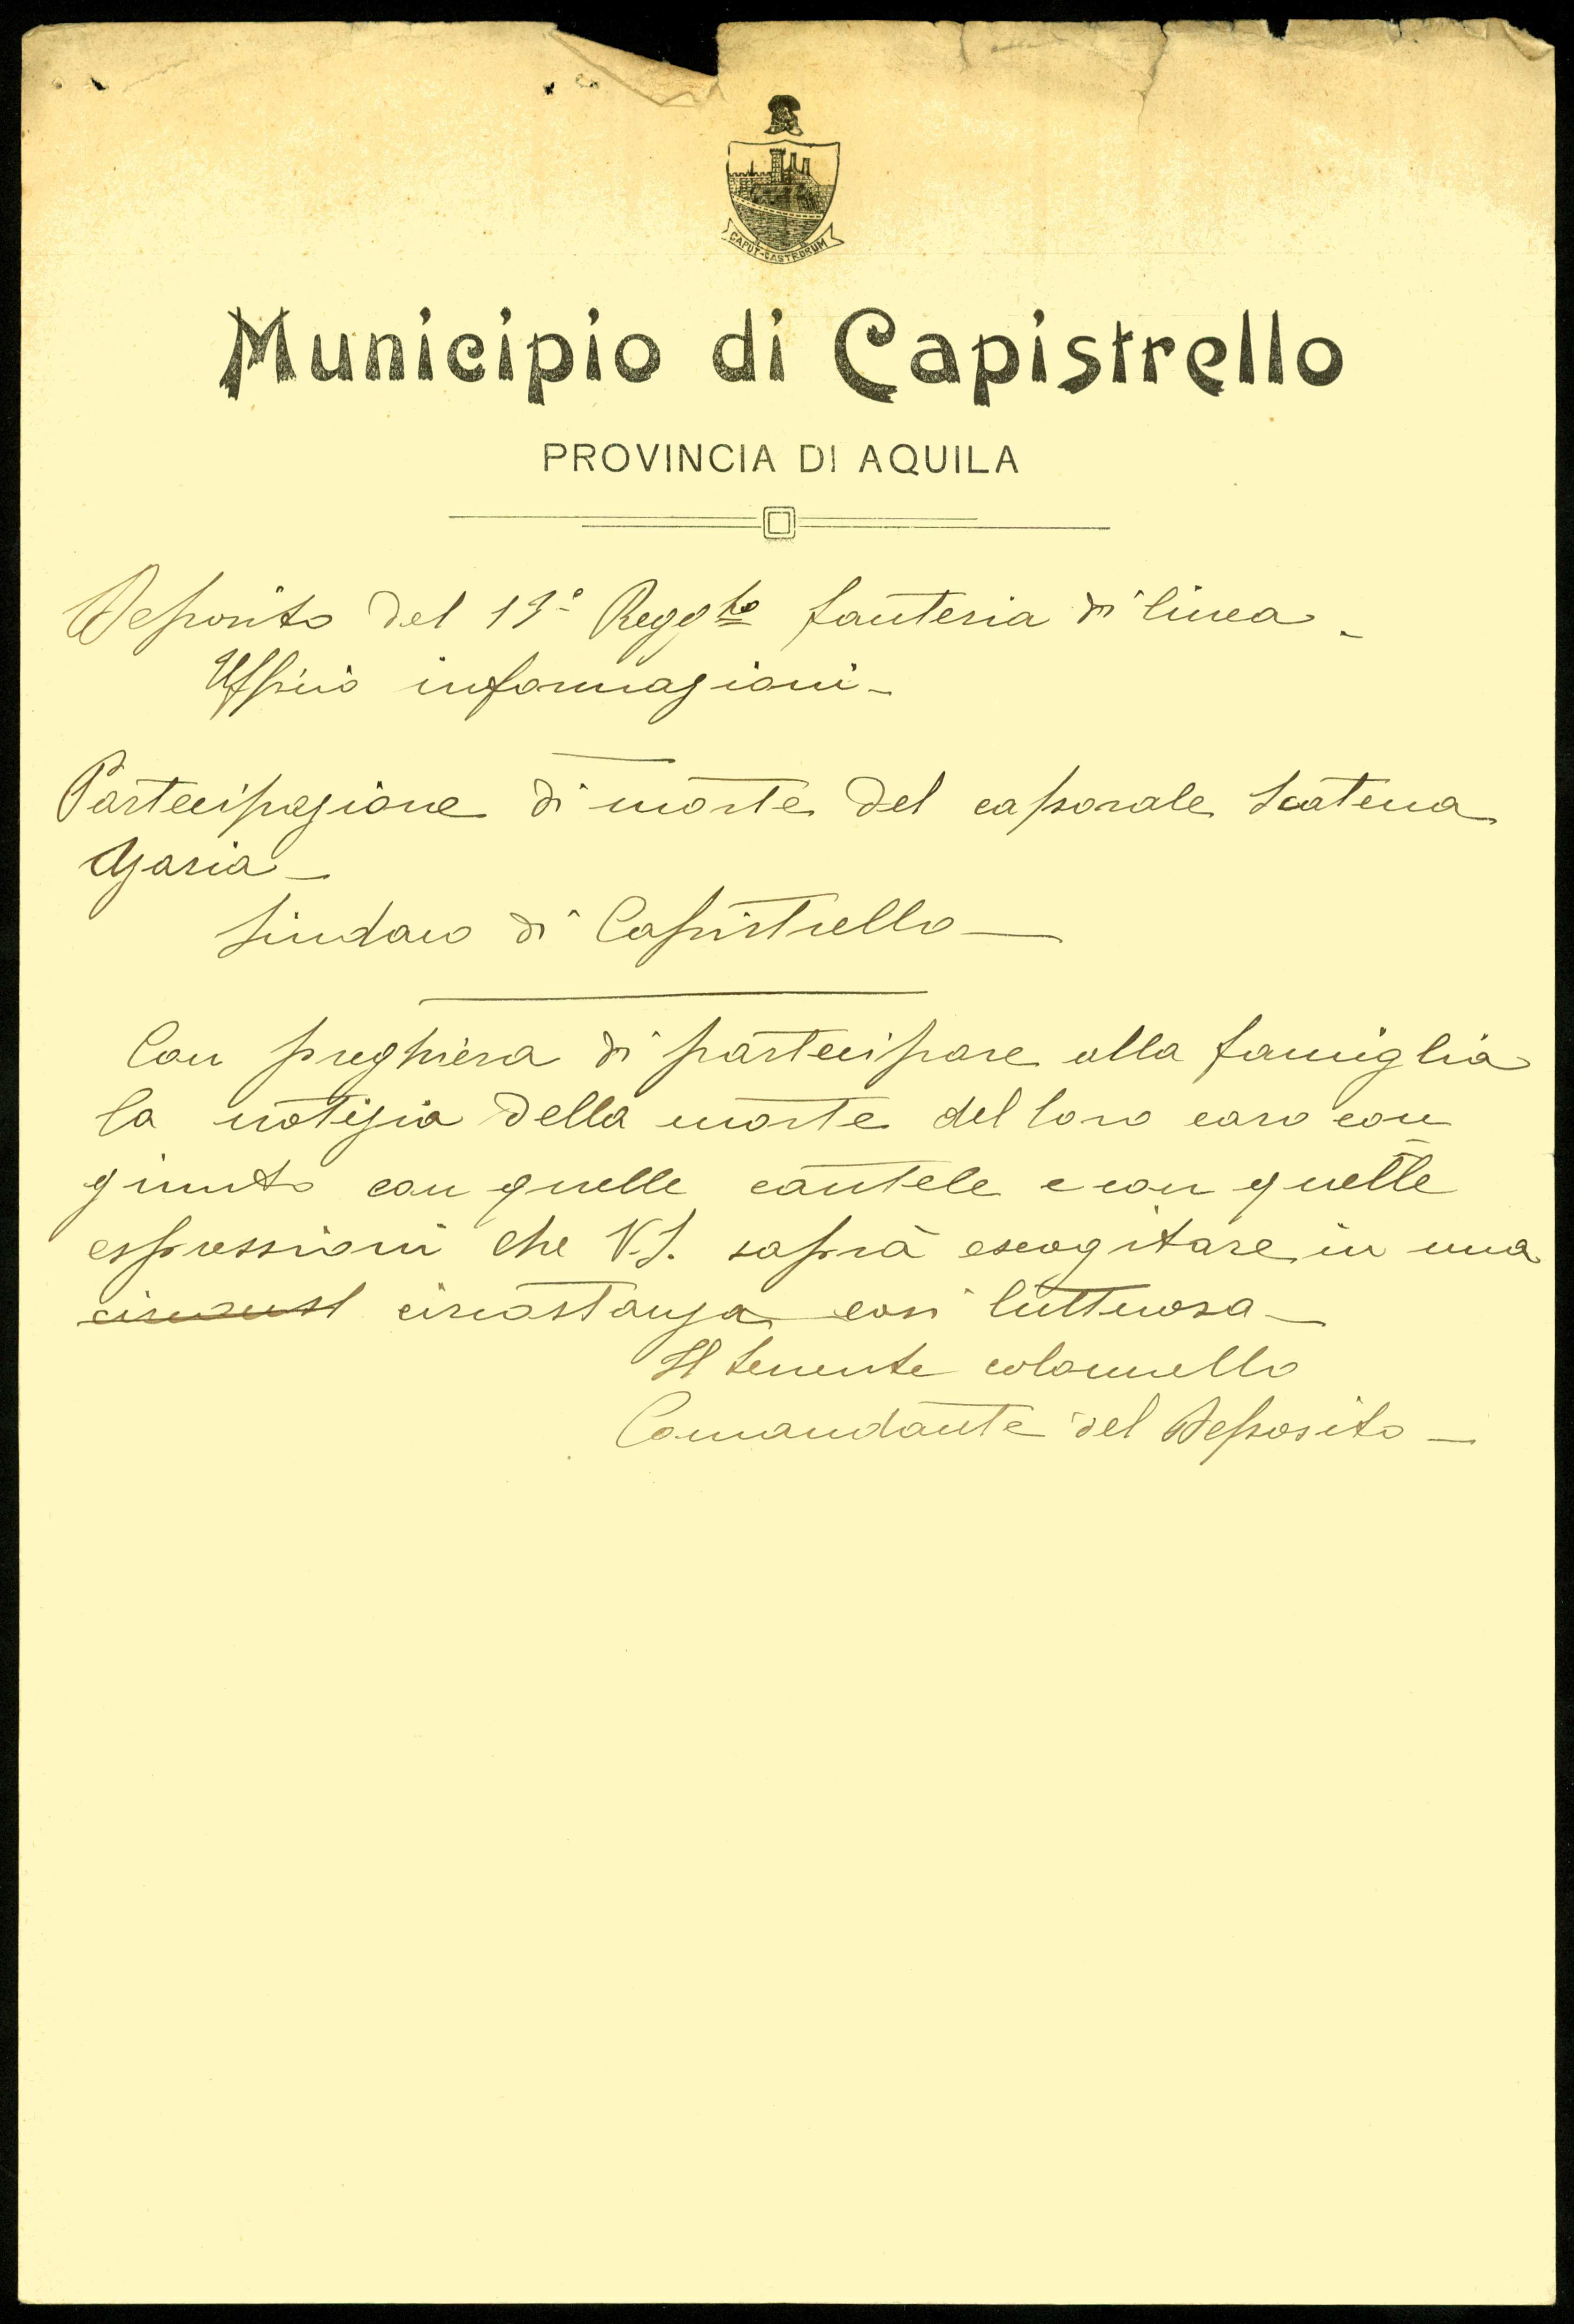 CAPUT-CASTRORUM
Municipio di Capistrello
PROVINCIA DI AQUILA
Deposito del 19° Regg.to fanteria di linea -
Ufficio informazioni -
Partecipazione di morte del caporale Scatena
Sindaco di Capistrello —
Con preghiera di partecipare alla famiglia
la notizia della morte del loro caro con
giunto con quelle cautele e con quelle
espressioni che V.S. saprà escogitare in una
circonst circostanza così luttuosa —
Il tenente colonnello
Comandante del Deposito —